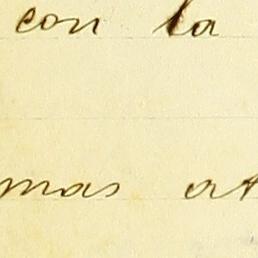 con la
mas at